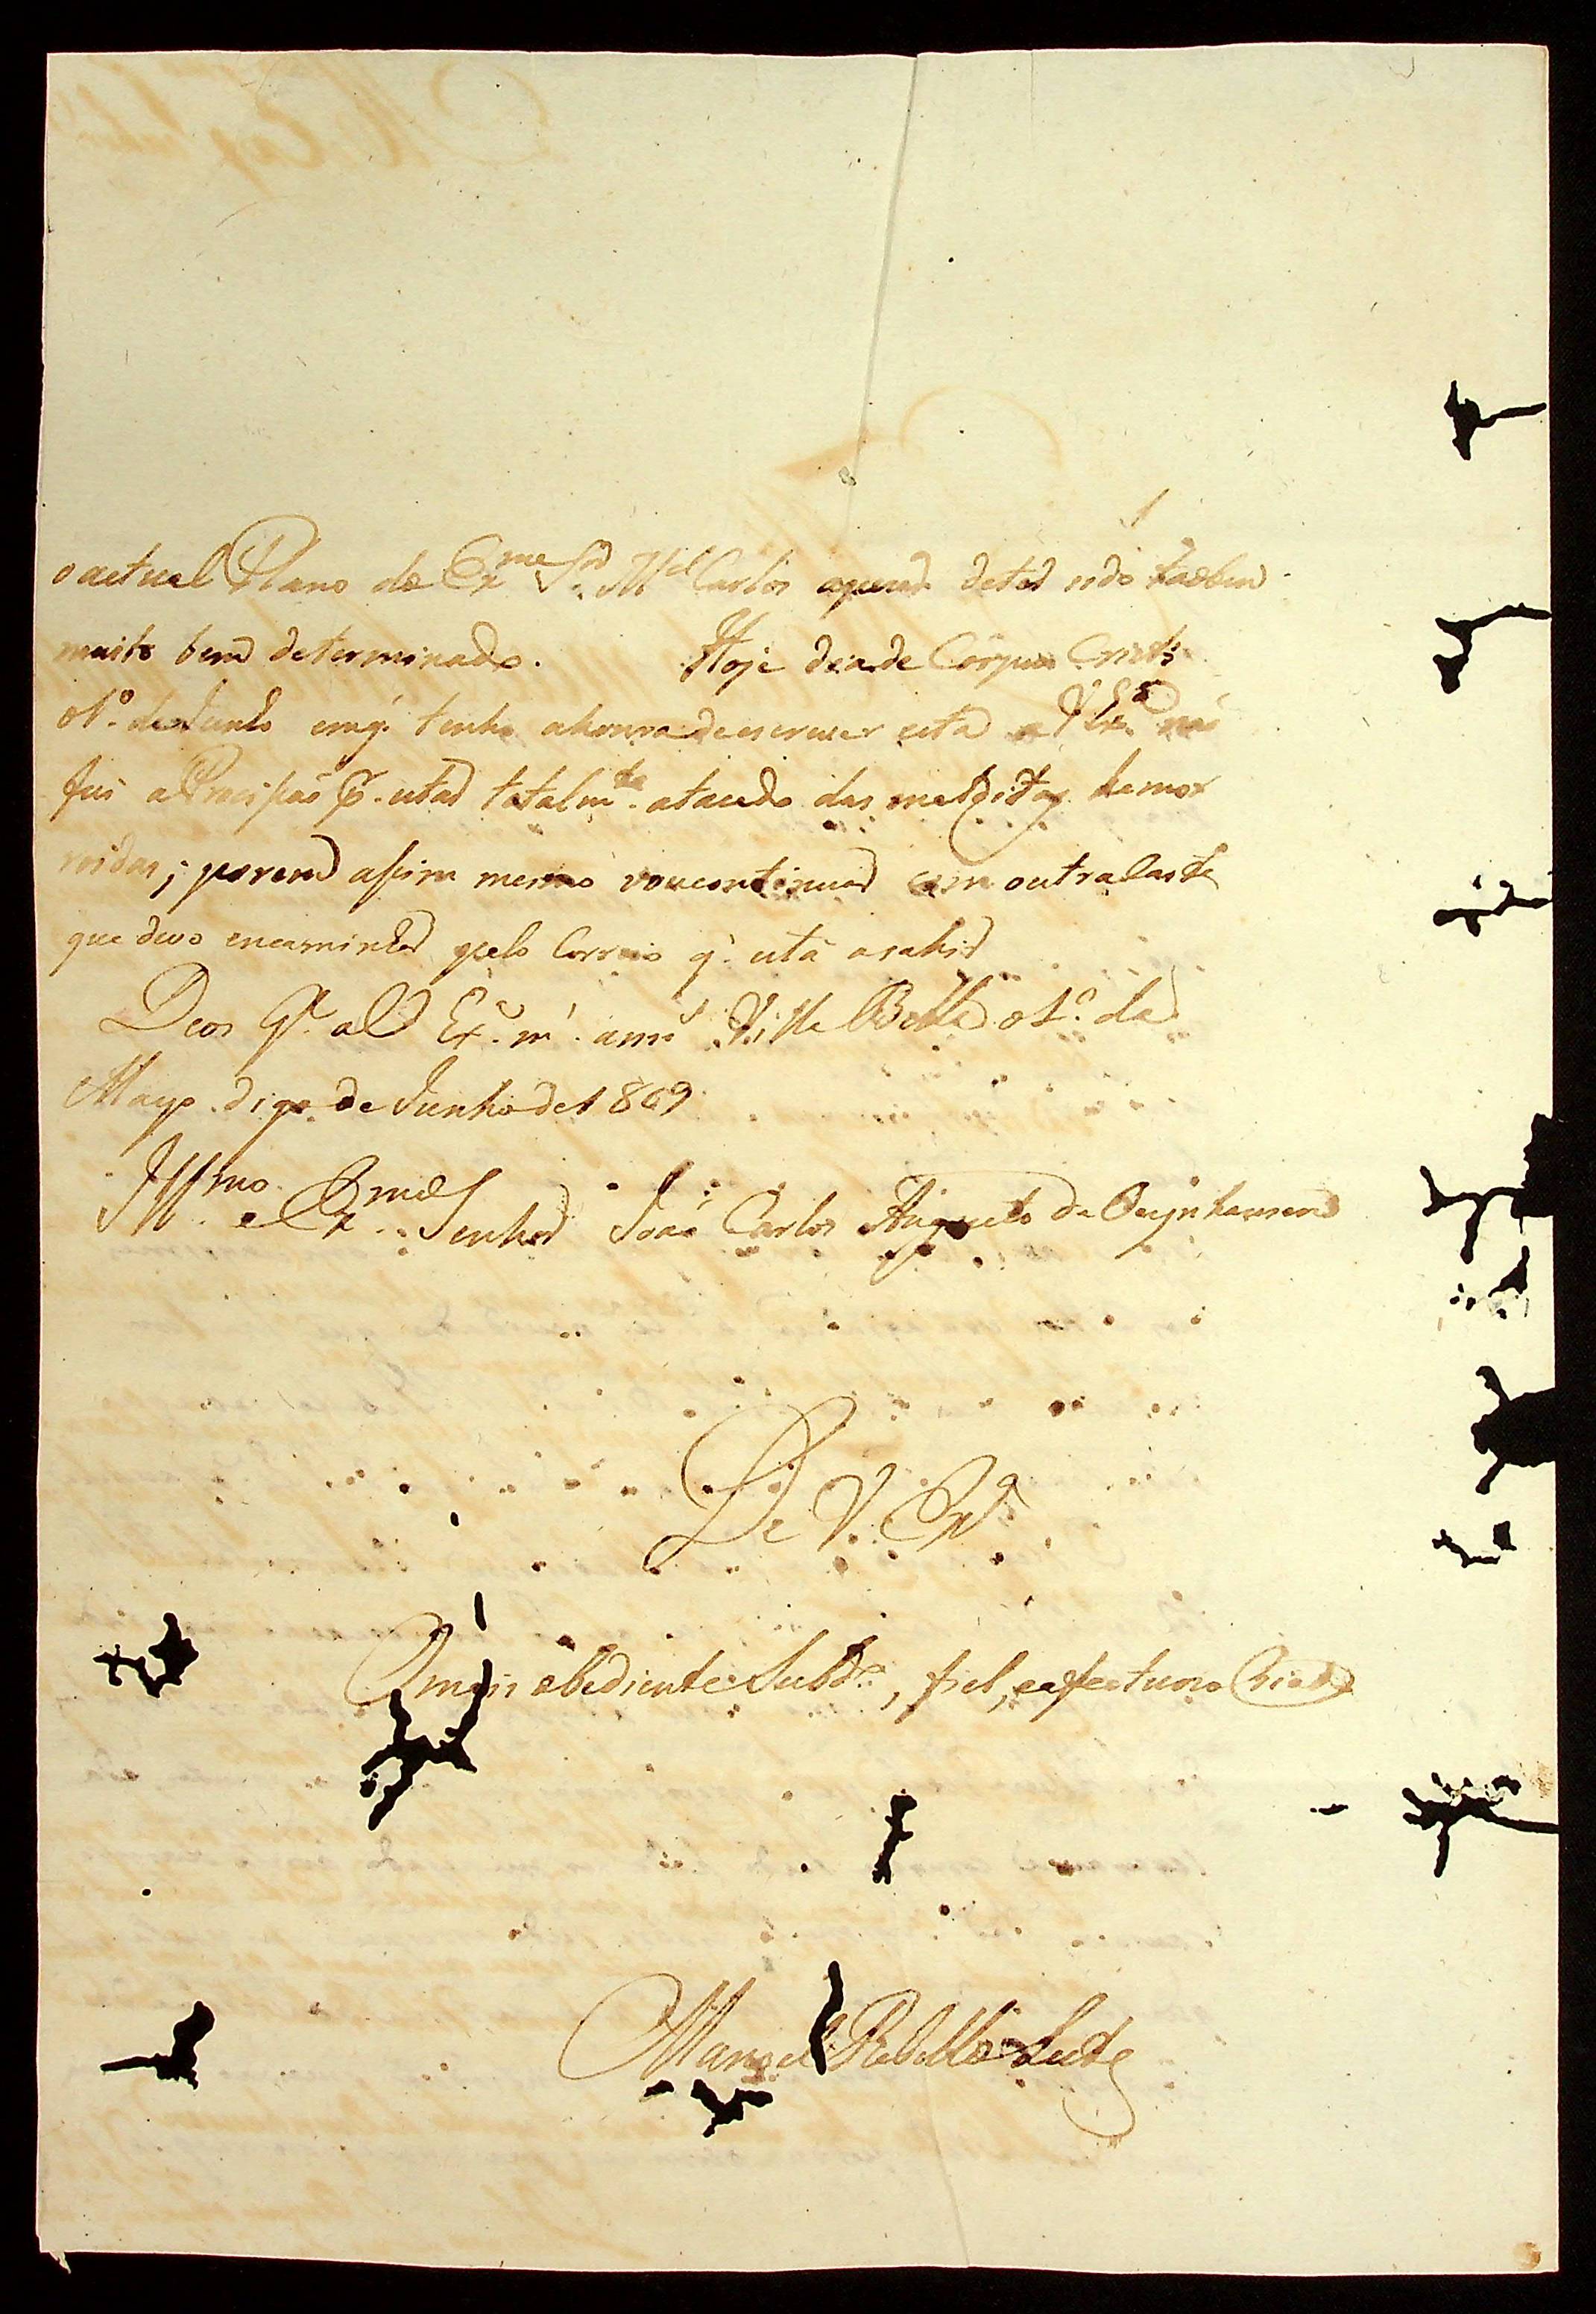 o actual Plano do Ex.mo Snr. M.el Carlos apezar deter sido taobem
muito bem determinado. Hoje dia de Corpus Cristi
o 1.º de Junho em q.' tenho ahonra de escrever esta a V. Ex.a naõ
fui a Procissaõ p.r estar totalm.te atacado das malditas hemor
roidas; porem assim mesmo vou continuar com outra Carta
que devo encaminhar pelo Correio q.' está a sahir
Deos G.e a V. Ex.a m.s ann.s Villa Bella o 1.º de
Mayo digo de Junho de 1809
Ill.mo e Ex.mo Senhor Joaõ Carlos Augusto de Oeynhausen
De V. Ex.a
O mais obediente Subd.o, fiel, e affectuoso Criado
Manoel Rebello Leite